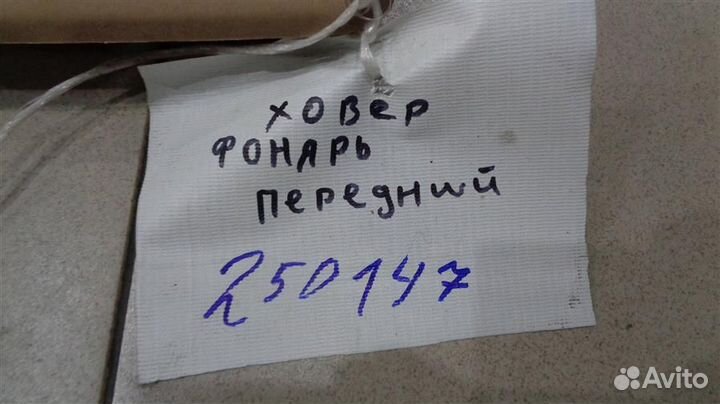 ховер
фонарь
передний
250147
Avito